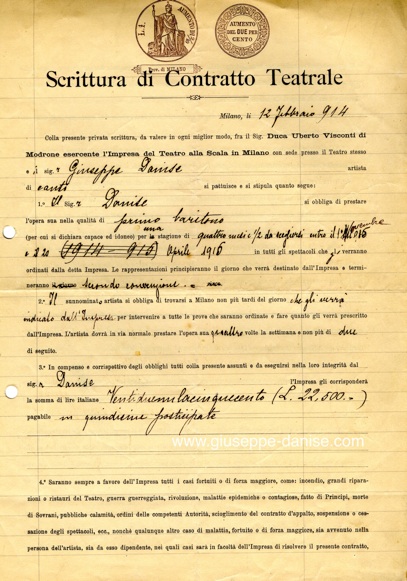 L. I.
AUMENTO DEL
DUE PER
CENTO
AUMENTO
DEL DUE PER
CENTO
Prov. di MILANO
Scrittura di Contratto Teatrale
Milano, li 12 Febbraio 914
Colla presente privata scrittura, da valere in ogni miglior modo, fra il Sig. Duca Uberto Visconti di
Modrone esercente l'Impresa del Teatro alla Scala in Milano con sede presso il Teatro stesso
e il sig.r Giuseppe Danise artista
di canto si pattuisce e si stipula quanto segue:
1.º Il Sig.r Danise si obbliga di prestare
l'opera sua nella qualità di primo baritono
(per cui si dichiara capace ed idoneo) per una stagione di quattro mesi e 1/2 da scegliersi entro il 1º Novembre 915
e il 20 1914-915 Aprile 1916 in tutti gli spettacoli che gli verranno
ordinati dalla detta Impresa. Le rappresentazioni principieranno il giorno che verrà destinato dall'Impresa e termi-
neranno secondo convenzione
2.º Il sunnominato artista si obbliga di trovarsi a Milano non più tardi del giorno che gli verrà
indicato dall'Impresa per intervenire a tutte le prove che saranno ordinate e fare quanto gli verrà prescritto
dall'Impresa. L'artista dovrà in via normale prestare l'opera sua quattro volte la settimana e non più di due
di seguito.
3.º In compenso e corrispettivo degli obblighi tutti colla presente assunti e da eseguirsi nella loro integrità dal
sig.r Danise l'Impresa gli corrisponderà
la somma di lire italiane Ventiduemilacinquecento (L. 22,500.-)
pagabile in quindicine posticipate
www.giuseppe-danise.com
4.º Saranno sempre a favore dell'Impresa tutti i casi fortuiti o di forza maggiore, come: incendio, grandi ripara-
zioni e ristauri del Teatro, guerra guerreggiata, rivoluzione, malattie epidemiche o contagiose, fatto di Principi, morte
di Sovrani, pubbliche calamità, ordini delle competenti Autorità, scioglimento del contratto d'appalto, sospensione o ces-
sazione degli spettacoli, ecc., nonchè qualunque altro caso di malattia, fortuito o di forza maggiore, sia avvenuto nella
persona dell'artista, sia da esso dipendente, nei quali casi sarà in facoltà dell'Impresa di risolvere il presente contratto,